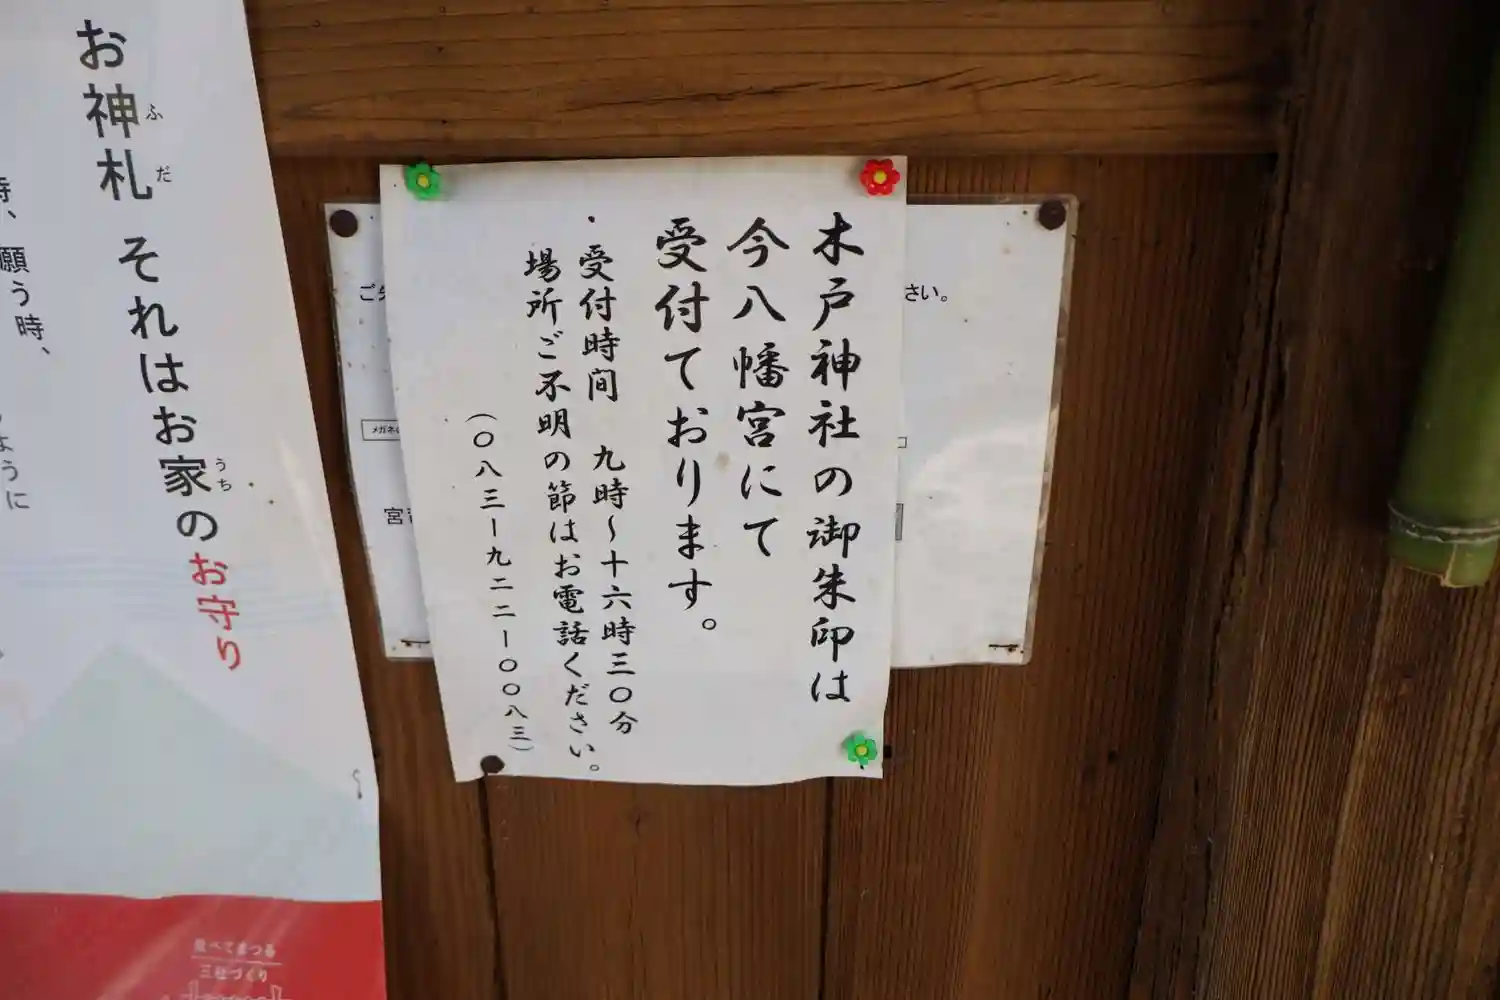 木戸神社の御朱印は
今八幡宮にて
受付ております。
・受付時間 九時~十六時三〇分
場所ご不明の節はお電話ください。
(〇八三ー九二二ー〇〇八三)
さい。
お神札 それはお家のお守り
ふだ
うち
願う時、
ように
三社づくり